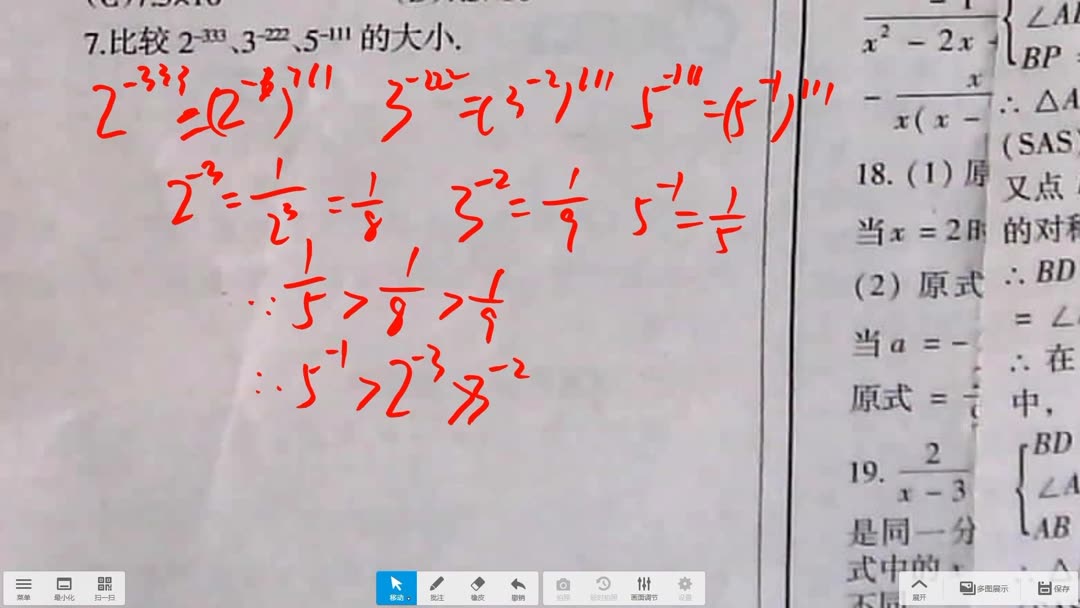 7.比较 2⁻³³³、3⁻²²²、5⁻¹¹¹ 的大小.
2⁻³³³=(2⁻³)¹¹¹ 3⁻²²²=(3⁻²)¹¹¹ 5⁻¹¹¹=(5⁻¹)¹¹¹
2⁻³=1/2³=1/8 3⁻²=1/9 5⁻¹=1/5
∵1/5>1/8>1/9
∴5⁻¹>2⁻³>3⁻²
x²-2x
x
x(x-
18.(1)原
当x=2时
(2)原式
当a=-
原式=
19. 2/(x-3)
是同一分
式中的x
BP
∴△A
(SAS)
又点
的对称
∴BD
=∠
∴在
中,
BD
∠A
AB
菜单 最小化 扫一扫
移动 批注 橡皮 撤销
拍照 延时拍照 画面调节 设置
展开 多图展示 保存